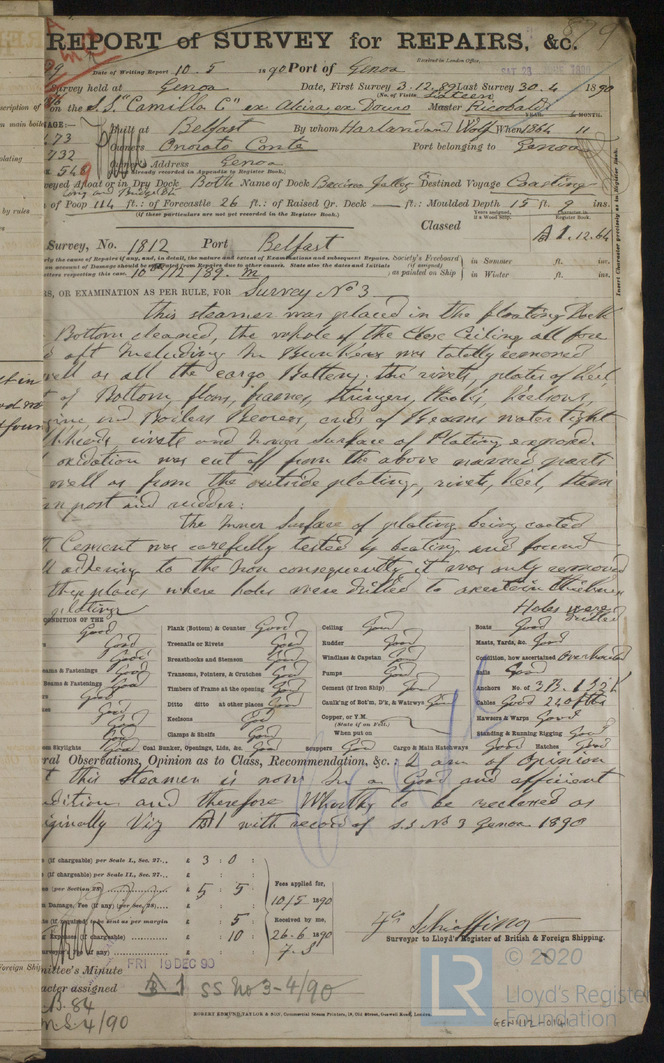 879
REPORT of SURVEY for REPAIRS, &c.
Received in London Office,
Date of Writing Report 10. 5 1890 Port of Genoa
Survey held at Genoa Date, First Survey 3.12.89 Last Survey 30.4 1890
(No. of Visits Sixteen
on the S.S "Camilla C" ex Alsira ex Douro Master Ricobaldi
YEAR. MONTH.
TAGE:— Built at Belfast By whom Harland and Wolf When 1864 11
73
732 Owners Onorato Conte Port belonging to Genoa
549 Owner's Address Genoa
(If not already recorded in Appendix to Register Book.)
veyed Afloat or in Dry Dock Both Name of Dock Destined Voyage Coasting
of Poop 114 ft.: of Forecastle 26 ft.: of Raised Qr. Deck — ft.: Moulded Depth 15 ft. 9 ins.
(if these particulars are not yet recorded in the Register Book.)
Classed A1.12.64
Survey, No. 1812 Port Belfast
Society's Freeboard (if assigned) as painted on Ship
in Summer ft. ins.
in Winter ft. ins.
RS, OR EXAMINATION AS PER RULE, FOR Survey No 3
this steamer was placed in the floating Dock
Bottom cleaned, the whole of the Close Ceiling all fore
aft including the Bunkers was totally removed
well as all the cargo Battens; the rivets, plates of Keel
of Bottom, floors, frames, Stringers, Hooks, Keelsons,
and Boilers Bearers, ends of Beams water tight
rivets and inner Surface of Plating exposed.
oxidation was cut off from the above named parts
well as from the outside plating, rivets, keel, stem
post and rudder:
the Inner Surface of plating being coated
Cement was carefully tested by beating and found
adhering to the Iron consequently it was only removed
places where holes were drilled to ascertain thickness
plating Holes were drilled
CONDITION OF THE
Good
Plank (Bottom) & Counter Good
Treenails or Rivets Good
Breasthooks and Stemson Good
Transoms, Pointers, & Crutches Good
Timbers of Frame at the opening Good
Ditto ditto at other places Good
Keelsons Good
Clamps & Shelfs Good
Coal Bunker, Openings, Lids, &c. Good
Ceiling Good
Rudder Good
Windlass & Capstan Good
Pumps Good
Cement (if Iron Ship) Good
Caulk'ng of Bot'm, D'k, & Watrwys Good
Copper, or Y.M.
(State if on Felt.)
When put on
Scuppers Good Cargo & Main Hatchways Good
Boats Good
Masts, Yards, &c. Good
Condition, how ascertained Overhauled
Sails Good
Anchors No. of 3B.
Cables Good
Hawsers & Warps Good
Standing & Running Rigging Good
Hatches Good
ral Observations, Opinion as to Class, Recommendation, &c.: I am of Opinion
this Steamer is now In a Good and efficient
dition and therefore Worthy to be reclassed as
iginally Viz A1 with record of S.S No 3 Genoa 1890
(if chargeable) per Scale I., Sec. 27... £ 3 : 0 :
(if chargeable) per Scale II., Sec. 27... £ : :
(per Section 28) £ 5 : 5
Damage, Fee (if any) (per Sec. 28) £ : :
(if required, to be sent as per margin £ : 5
Expenses (if chargeable) £ : 10
Fees applied for,
10/5 1890
Received by me,
26-6 1890
7-3
Schiaffino
Surveyor to Lloyd's Register of British & Foreign Shipping.
mittee's Minute FRI 19 DEC 90
racter assigned B 1 SS No 3-4/90
B. 84
4/90
ROBERT EDMUND TAYLOR & SON, Commercial Steam Printers, 19, Old Street, Goswell Road, London.
LR
© 2020
Lloyd's Register
Foundation